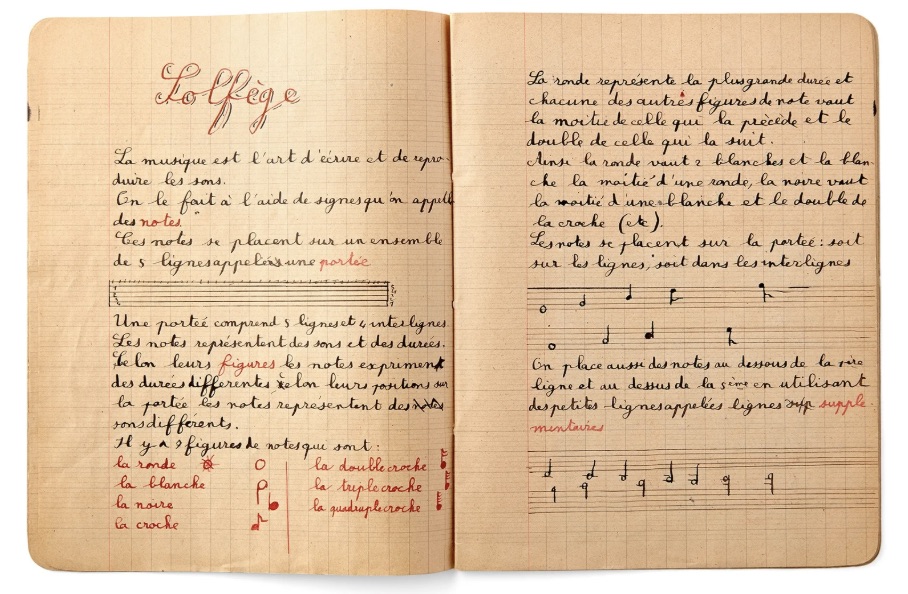 Solfège
La musique est l'art d'écrire et de repro-
duire les sons.
On le fait à l'aide de signes qu'on appelle
des notes.
Ces notes se placent sur un ensemble
de 5 lignes appelées une portée
Une porteé comprend 5 lignes et 4 interlignes
Les notes représentent des sons et des durées.
Selon leurs figures les notes expriment
des durées différentes selon leurs positions sur
la portée les notes représentent des notes
sons différents.
Il y a 7 figures de notes qui sont :
la ronde
la blanche
la noire
la croche
la double croche
la triple croche
la quadruple croche
La ronde représente la plus grande durée et
chacune des autres figures de note vaut
la moitie de celle qui la précède et le
double de celle qui la suit.
Ainsi la ronde vaut 2 blanches et la blan-
che la moitié d'une ronde, la noire vaut
la moitié d'une blanche et le double de
la croche (etc).
Les notes se placent sur la porteé : soit
sur les lignes, soit dans les interlignes
On place aussi des notes au dessous de la 1ère
ligne et au dessus de la 5ème en utilisant
des petites lignes appelées lignes supp supplé-
mentaires